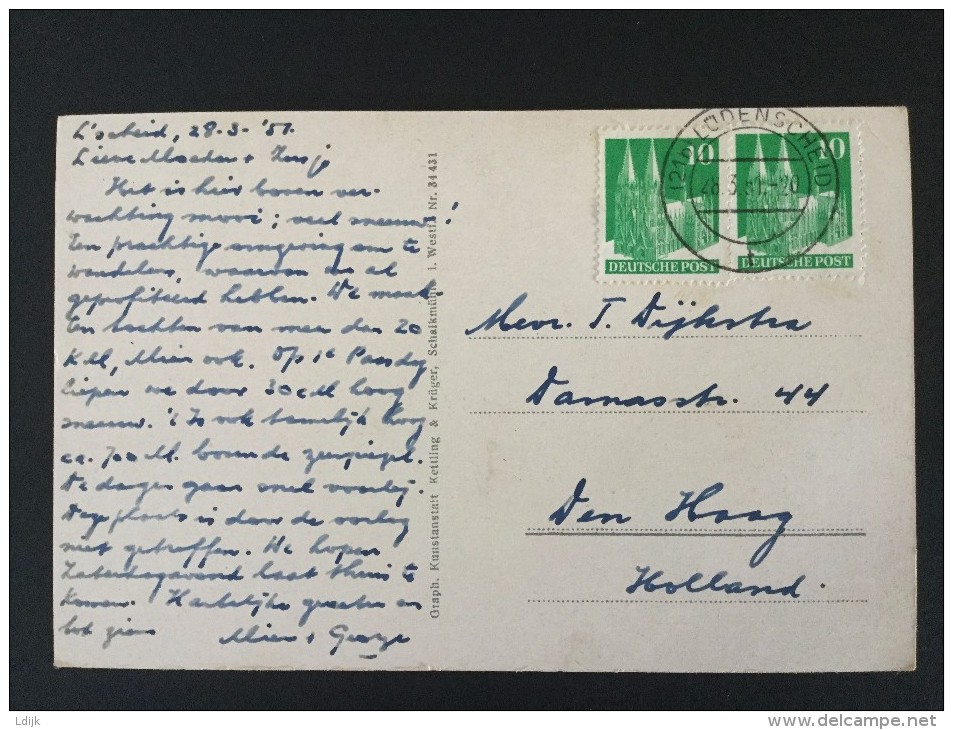 L'scheid, 28-3-'51.
Lieve Moeder + Zusje
Het is hier boven ver-
wachting mooi; veel sneeuw!
Een prachtige omgeving om te
wandelen, waarvan we al
geprofiteerd hebben. We maak-
ten tochten van meer dan 20
KM, Mies ook. Op 1e Paasdag
liepen we door 30 cM hoog
sneeuw. 't Is ook tamelijk hoog
ca. 700 M. boven de zeespiegel.
De dagen gaan snel voorbij.
De plaats is door de oorlog
niet getroffen. We hopen
Zaterdagavond laat thuis te
komen. Hartelijke groeten en
tot ziens Mies + George
Graph. Kunstanstalt Kettling & Krüger, Schalkmühle i. Westf. Nr. 34 431
10
10
DEUTSCHE POST
DEUTSCHE POST
(21b) LÜDENSCHEID
28.3.51.-20
Mevr. T. Dijkstra
Damasstr. 44
Den Haag
Holland.
Ldijk
www.delcampe.net